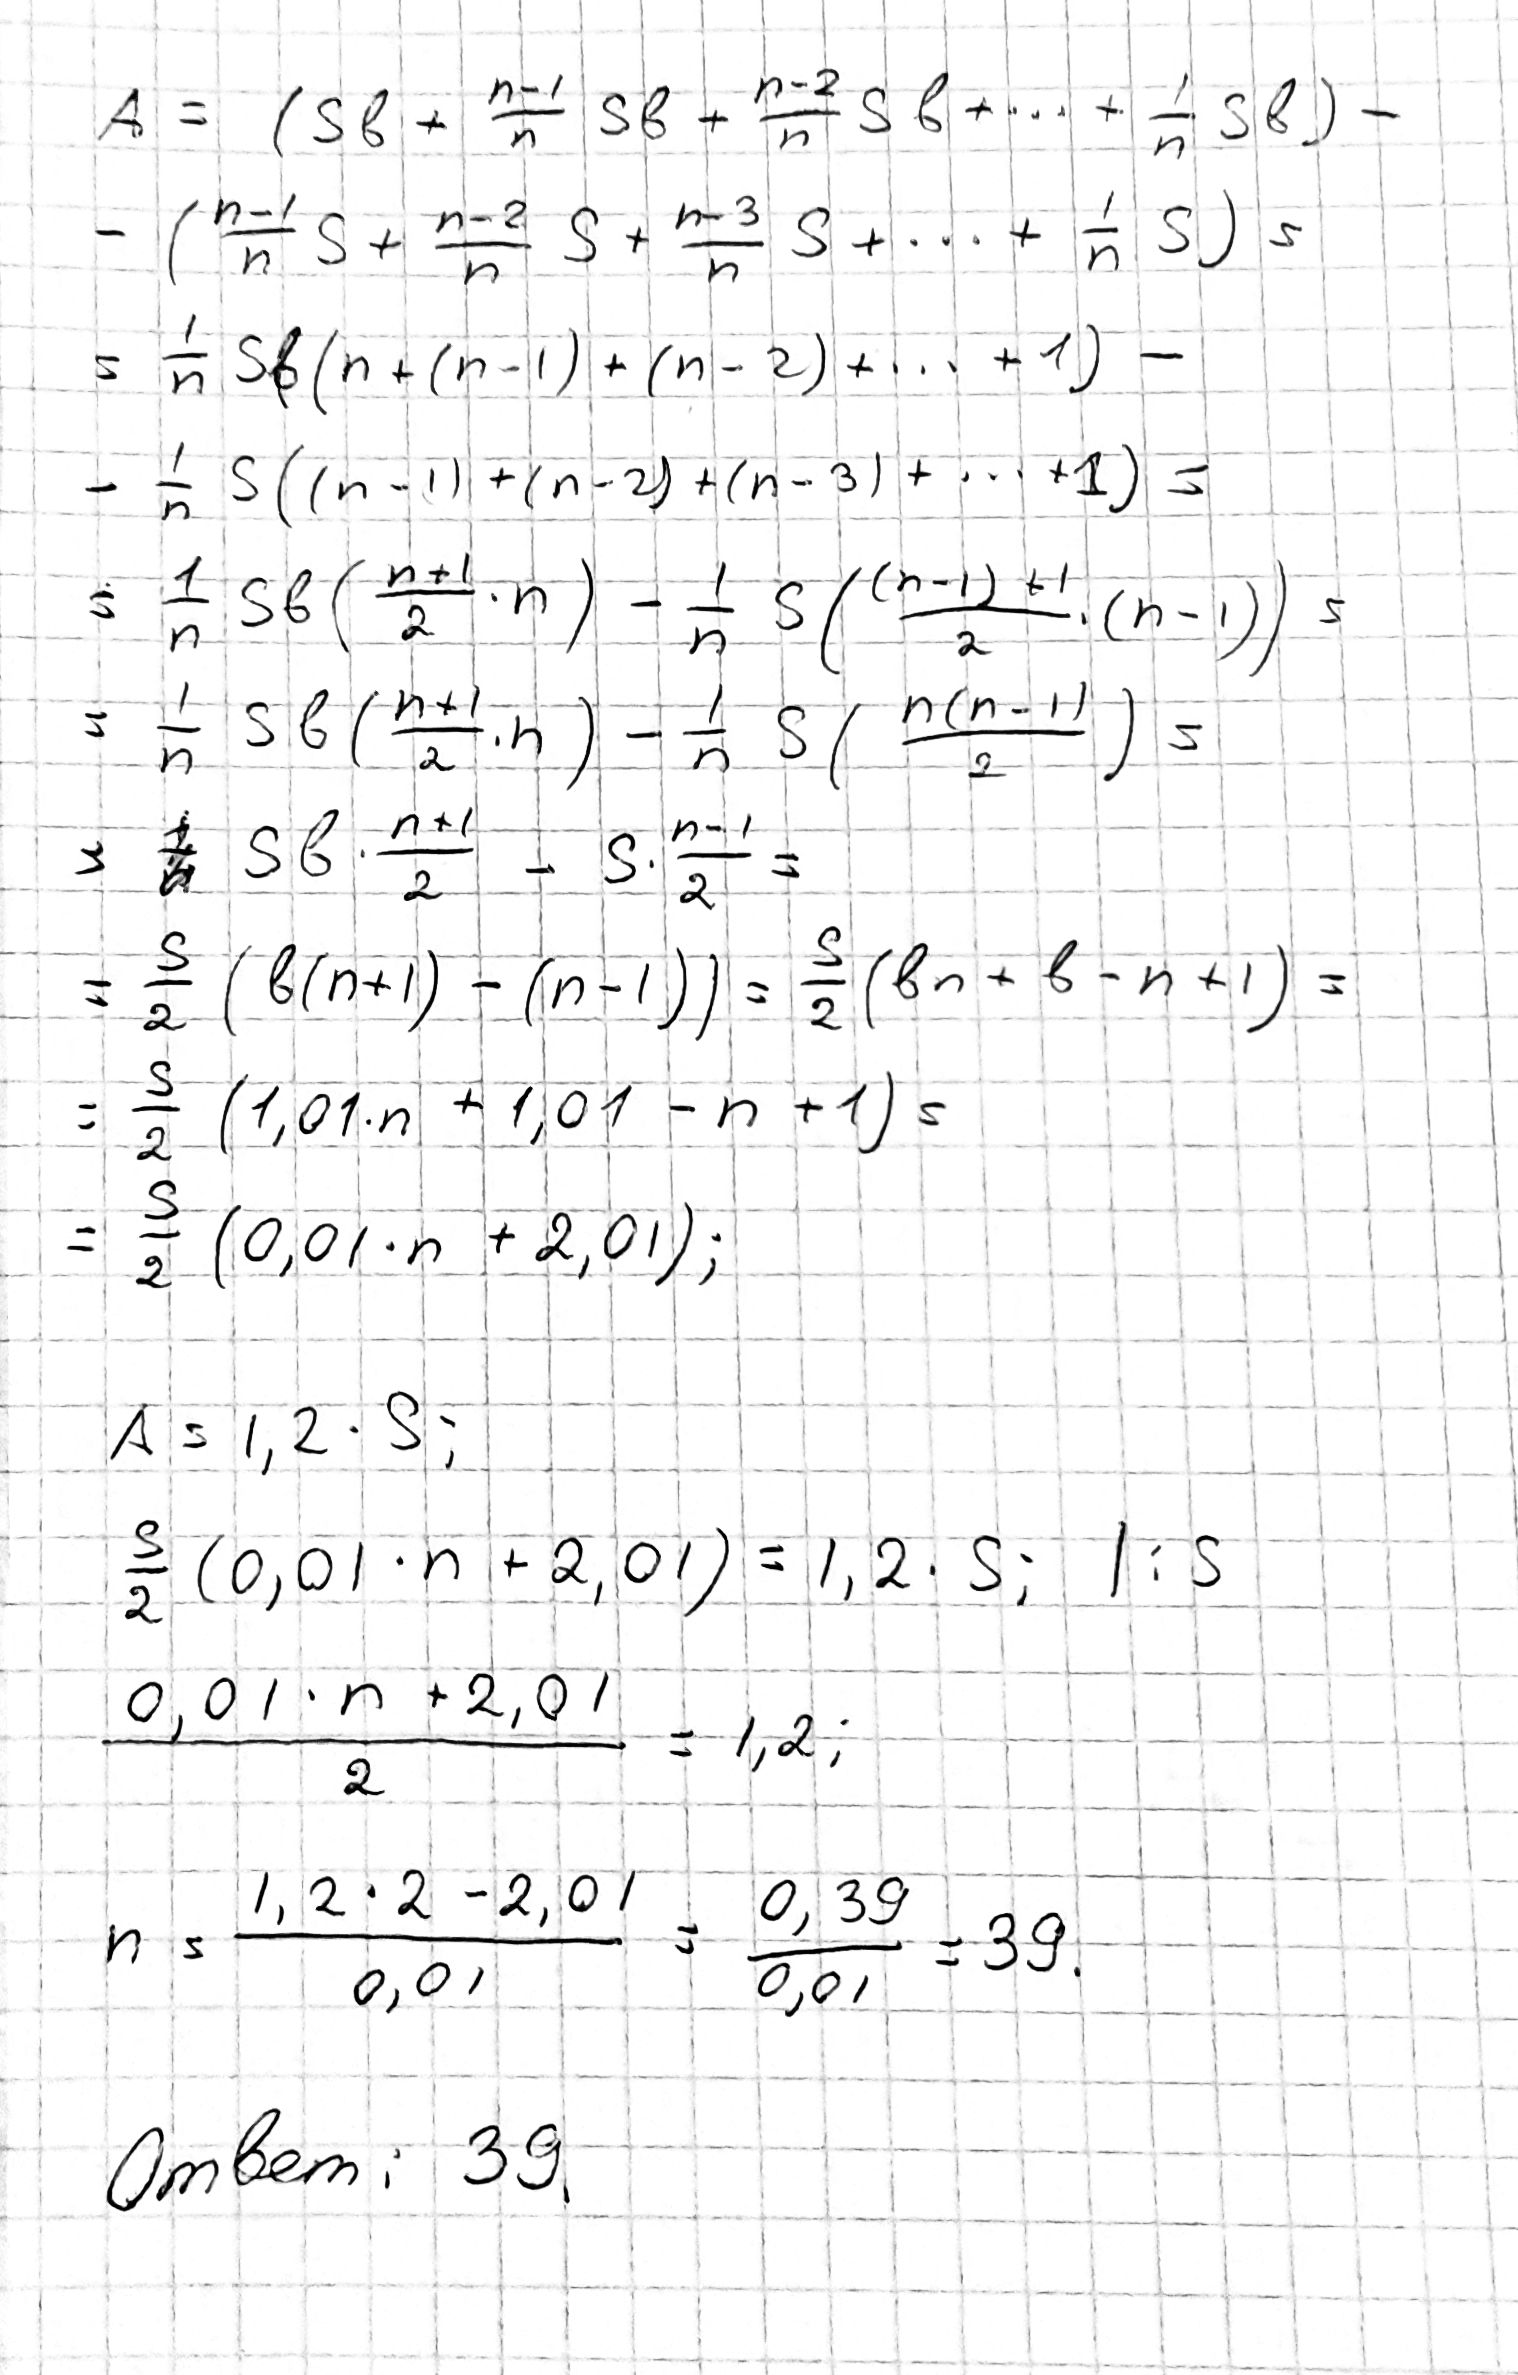 A = (Sb + \frac{n-1}{n} Sb + \frac{n-2}{n} Sb + ... + \frac{1}{n} Sb) -
- (\frac{n-1}{n} S + \frac{n-2}{n} S + \frac{n-3}{n} S + ... + \frac{1}{n} S) =
= \frac{1}{n} Sb(n + (n-1) + (n-2) + ... + 1) -
- \frac{1}{n} S((n-1) + (n-2) + (n-3) + ... + 1) =
= \frac{1}{n} Sb(\frac{n+1}{2} · n) - \frac{1}{n} S(\frac{(n-1)+1}{2} · (n-1)) =
= \frac{1}{n} Sb(\frac{n+1}{2} · n) - \frac{1}{n} S(\frac{n(n-1)}{2}) =
= Sb · \frac{n+1}{2} - S · \frac{n-1}{2} =
= \frac{S}{2} (b(n+1) - (n-1)) = \frac{S}{2} (bn + b - n + 1) =
= \frac{S}{2} (1,01 · n + 1,01 - n + 1) =
= \frac{S}{2} (0,01 · n + 2,01);
A = 1,2 · S;
\frac{S}{2} (0,01 · n + 2,01) = 1,2 · S; |:S
\frac{0,01 · n + 2,01}{2} = 1,2;
n = \frac{1,2 · 2 - 2,01}{0,01} = \frac{0,39}{0,01} = 39.
Ответ: 39.